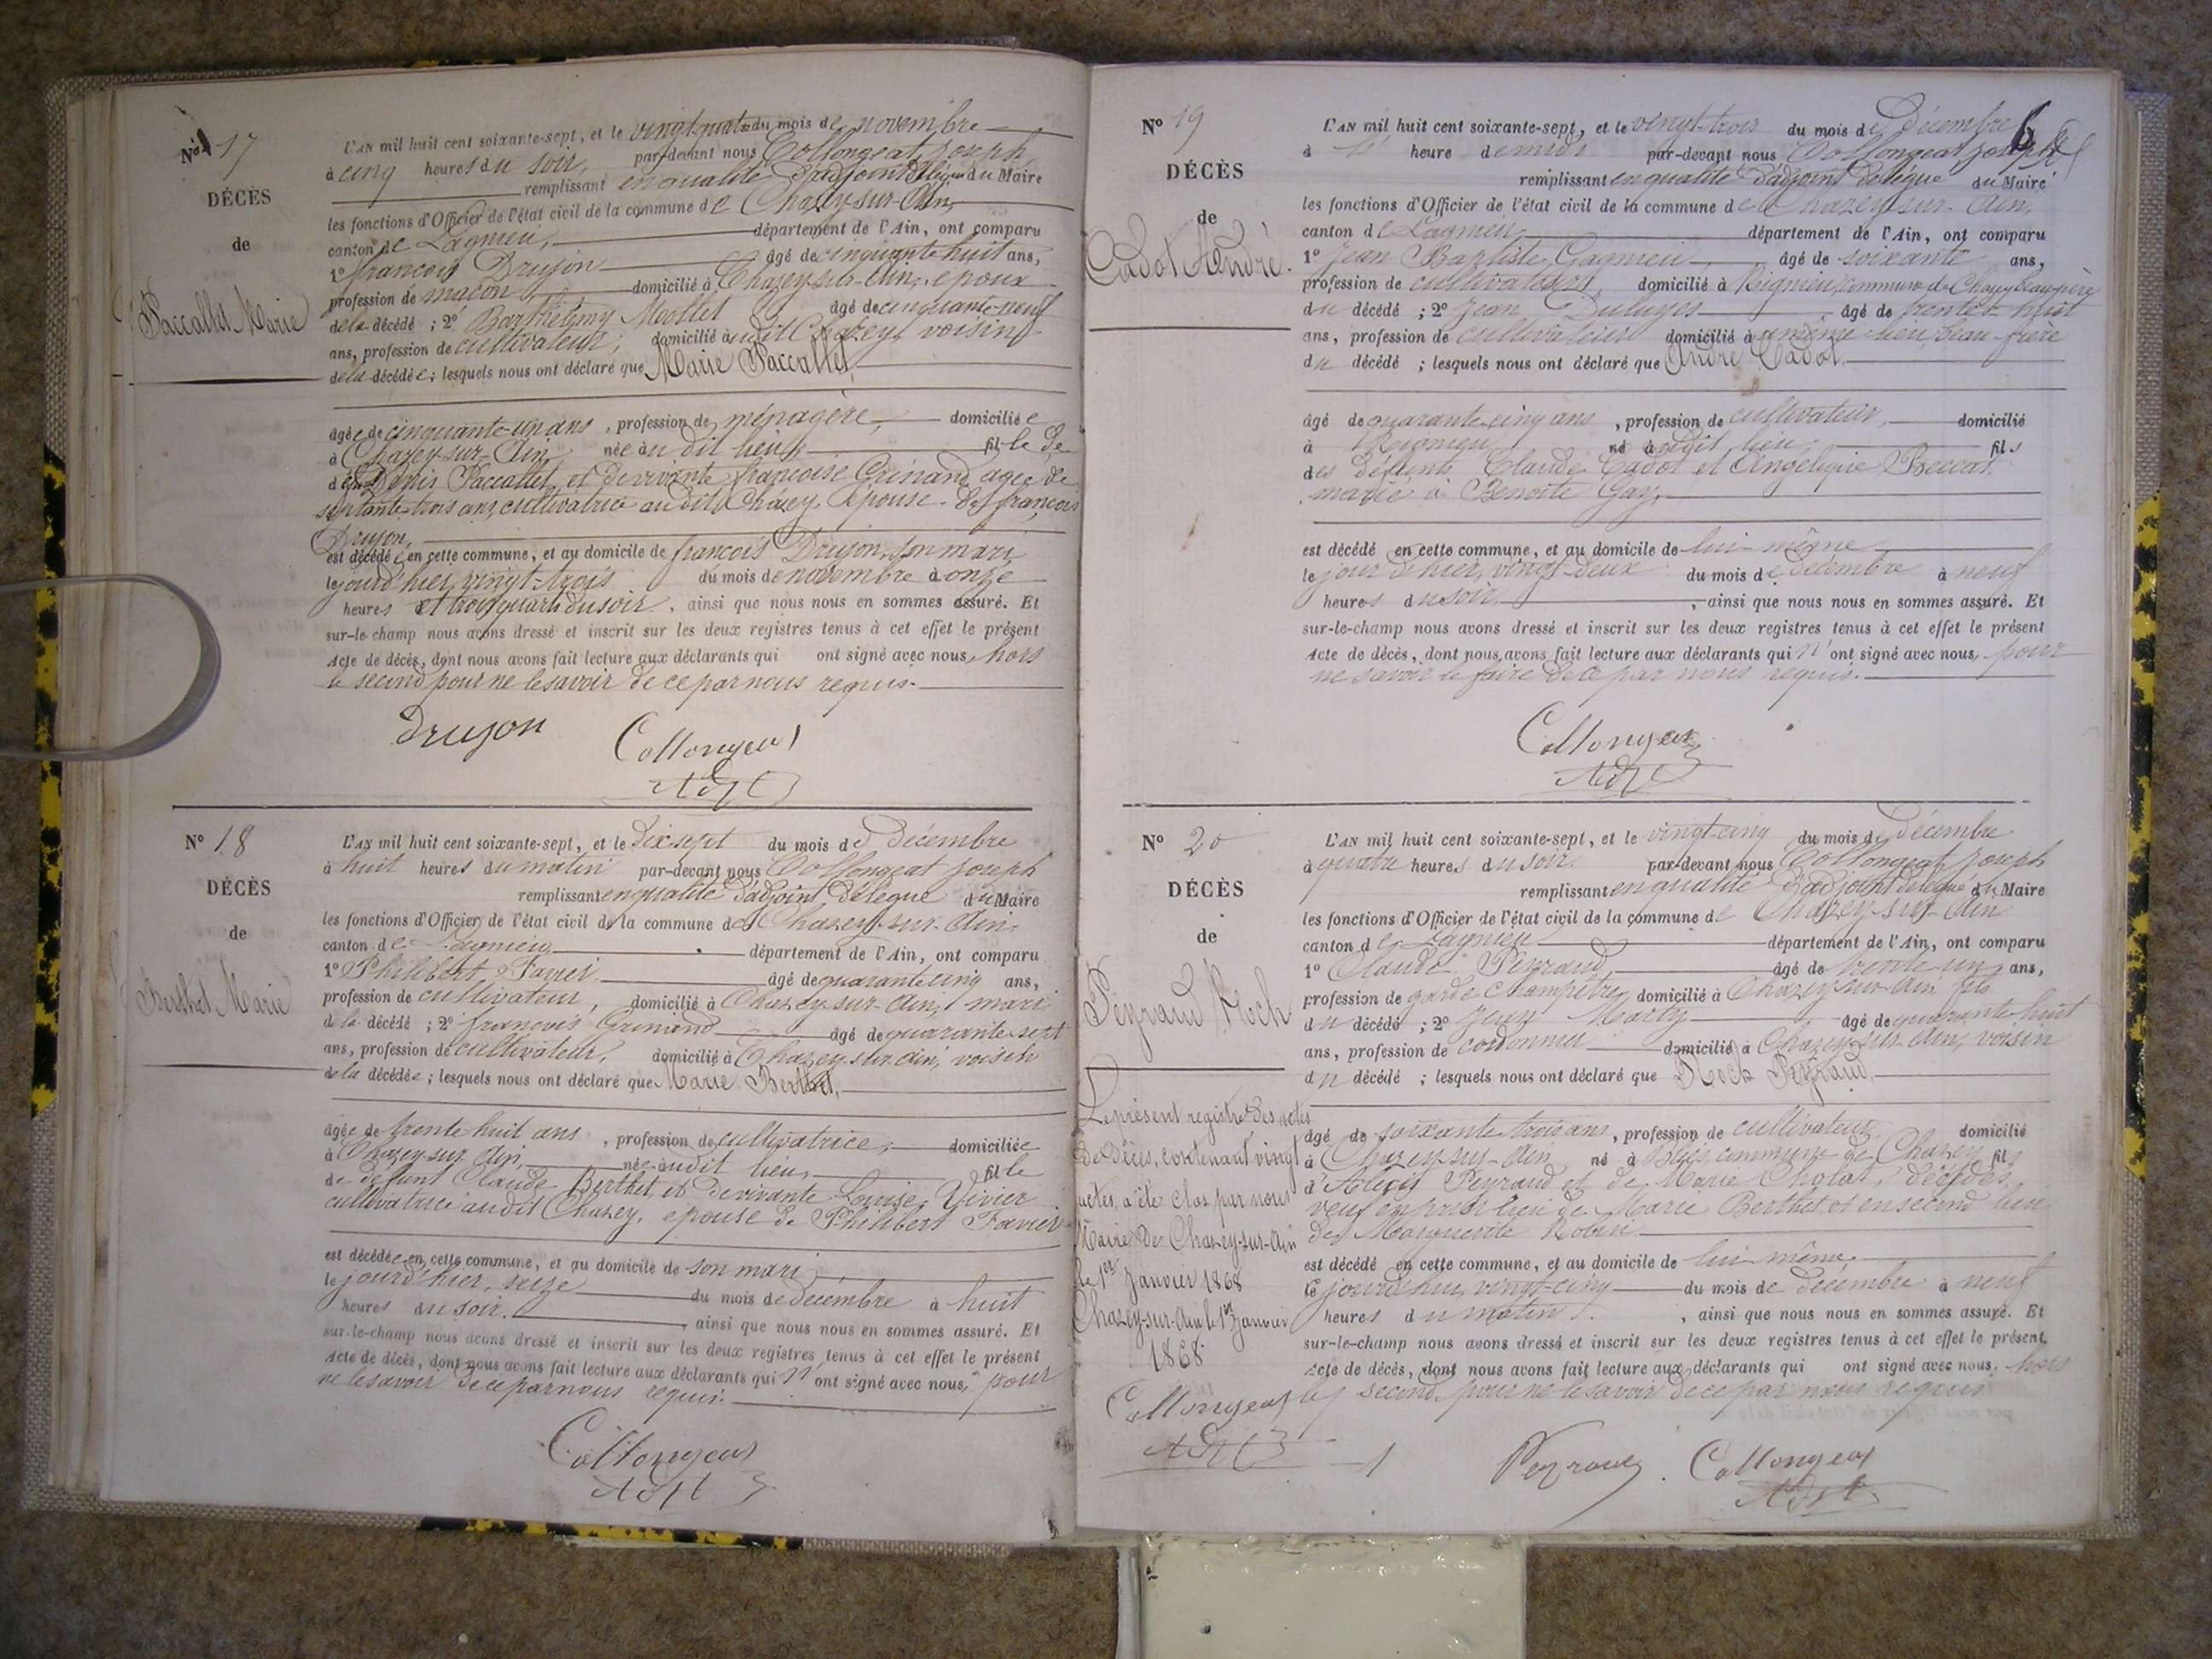 N° 17
DÉCÈS
de
Paccallet Marie
L'AN mil huit cent soixante-sept, et le vingt-quatre du mois de novembre
à cinq heures du soir, par-devant nous Collongeat Joseph
remplissant en qualité d'adjoint délégué du Maire
les fonctions d'Officier de l'état civil de la commune de Chazey-sur-Ain,
canton de Lagnieu, département de l'Ain, ont comparu
1° françois Drujon âgé de cinquante huit ans,
profession de maçon, domicilié à Chazey-sur-Ain, époux
de la décédé ; 2° Barthélemy Mollet âgé de cinquante-neuf
ans, profession de cultivateur, domicilié audit Chazey, voisin
de la décédée ; lesquels nous ont déclaré que Marie Paccallet,
âgée de cinquante-un ans, profession de ménagère, domiciliée
à Chazey-sur-Ain née au dit lieu, fille de
Denis Paccallet et de vivante françoise Grinand, agée de
septante-trois ans, cultivatrice audit Chazey, épouse de françois
Drujon,
est décédée en cette commune, et au domicile de françois Drujon, son mari,
le jour d'hier, vingt-trois du mois de novembre à onze
heures et trois quarts du soir, ainsi que nous nous en sommes assuré. Et
sur-le-champ nous avons dressé et inscrit sur les deux registres tenus à cet effet le présent
Acte de décès, dont nous avons fait lecture aux déclarants qui ont signé avec nous, hors
le second pour ne le savoir de ce par nous requis.
Drujon Collongeat
Adjt
N° 18
DÉCÈS
de
Berthet Marie
L'AN mil huit cent soixante-sept, et le dix sept du mois de décembre
à huit heures du matin par-devant nous Collongeat Joseph
remplissant en qualité d'adjoint délégué du Maire
les fonctions d'Officier de l'état civil de la commune de Chazey-sur-Ain,
canton de Lagnieu département de l'Ain, ont comparu
1° Philibert Favier âgé de quarante cinq ans,
profession de cultivateur, domicilié à Chazey-sur-Ain, mari
de la décédé ; 2° françois Grinand âgé de quarante sept
ans, profession de cultivateur, domicilié à Chazey sur Ain, voisin
de la décédée ; lesquels nous ont déclaré que Marie Berthet,
âgée de trente huit ans, profession de cultivatrice, domiciliée
à Chazey sur Ain, née audit lieu, fille
de défunt Claude Berthet et de vivante Louise Vivier
cultivatrice audit Chazey, épouse de Philibert Favier
est décédée en cette commune, et au domicile de son mari,
le jour d'hier, seize du mois de décembre à huit
heures du soir, ainsi que nous nous en sommes assuré. Et
sur-le-champ nous avons dressé et inscrit sur les deux registres tenus à cet effet le présent
Acte de décès, dont nous avons fait lecture aux déclarants qui n'ont signé avec nous, pour
ne le savoir de ce par nous requis.
Collongeat
Adjt
N° 19
DÉCÈS
de
Cadot André.
6
L'AN mil huit cent soixante-sept, et le vingt-trois du mois de décembre
à heure de midi par-devant nous Collongeat Joseph
remplissant en qualité d'adjoint délégué du Maire
les fonctions d'Officier de l'état civil de la commune de Chazey-sur-Ain,
canton de Lagnieu, département de l'Ain, ont comparu
1° Jean Baptiste Gagnieu, âgé de soixante ans,
profession de cultivateur, domicilié à Rignieu, commune de Chazey beau-père
du décédé ; 2° Jean âgé de trente huit
ans, profession de cultivateur domicilié au même lieu, beau-frère
du décédé ; lesquels nous ont déclaré que André Cadot,
âgé de quarante-cinq ans, profession de cultivateur, domicilié
à Rignieu, né audit lieu, fils
des défunts Claude Cadot et Angélique Beccat,
marié à Benoîte Gay,
est décédé en cette commune, et au domicile de lui-même
le jour d'hier, vingt-deux du mois de décembre à neuf
heures du soir, ainsi que nous nous en sommes assuré. Et
sur-le-champ nous avons dressé et inscrit sur les deux registres tenus à cet effet le présent
Acte de décès, dont nous avons fait lecture aux déclarants qui n'ont signé avec nous, pour
ne savoir le faire de ce par nous requis.
Collongeat
Adjt
N° 20
DÉCÈS
de
Peyraud Roch
L'AN mil huit cent soixante-sept, et le vingt-cinq du mois de décembre
à quatre heures du soir par-devant nous Collongeat Joseph
remplissant en qualité d'adjoint délégué du Maire
les fonctions d'Officier de l'état civil de la commune de Chazey-sur-Ain
canton de Lagnieu département de l'Ain, ont comparu
1° Claude Peyraud, âgé de trente un ans,
profession de garde champêtre, domicilié à Chazey sur Ain fils
du décédé ; 2° Jean Marty âgé de quarante huit
ans, profession de cordonnier domicilié à Chazey sur Ain, voisin
du décédé ; lesquels nous ont déclaré que Roch Peyraud,
âgé de soixante trois ans, profession de cultivateur domicilié
à Chazey-sur-Ain né à commune de Chazey fils
d'Alexis Peyraud et de Marie Cholat, décédés
veuf en premier lieu de Marie Berthet et en second lieu
de Marguerite Robin
est décédé en cette commune, et au domicile de lui même
le jourd'hui, vingt-cinq du mois de décembre à neuf
heures du matin, ainsi que nous nous en sommes assuré. Et
sur-le-champ nous avons dressé et inscrit sur les deux registres tenus à cet effet le présent
Acte de décès, dont nous avons fait lecture aux déclarants qui ont signé avec nous, hors
le second, pour ne le savoir de ce par nous requis
Peyraud. Collongeat
Adjt
Le présent registre des actes
de décès, contenant vingt
actes, a été clos par nous
Maire de Chazey-sur-Ain
le 1er janvier 1868
Chazey-sur-Ain le 1er janvier
1868
Collongeat
Adjt